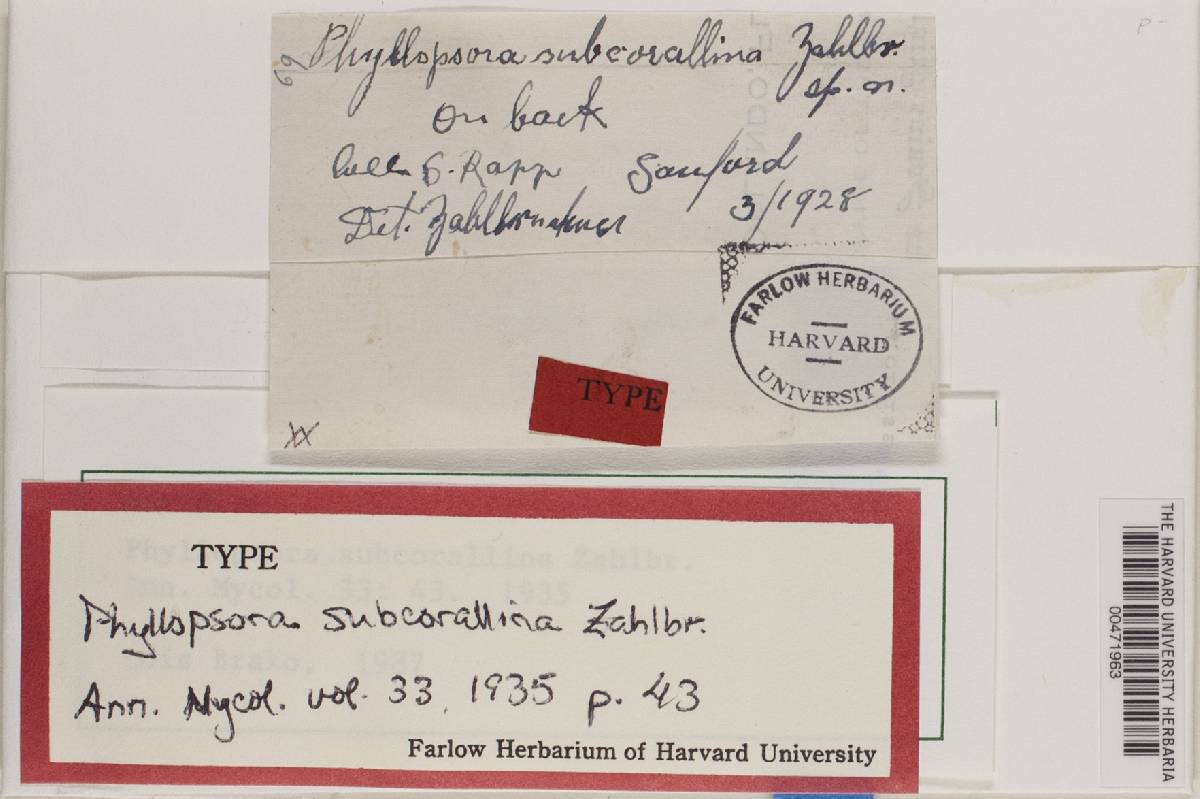 69 Phyllopsora subcorallina Zahlbr.
sp. n.
On bark
Coll. S. Rapp Sanford
Det. Zahlbruckner 3/1928
FARLOW HERBARIUM
HARVARD
UNIVERSITY
TYPE
XX
TYPE
Phyllopsora subcorallina Zahlbr.
Ann. Mycol. vol. 33, 1935 p. 43
Farlow Herbarium of Harvard University
Phyllopsora subcorallina Zahlbr.
Ann. Mycol. 33: 43. 1935
Lois Brako, 1987
THE HARVARD UNIVERSITY HERBARIA
00471963